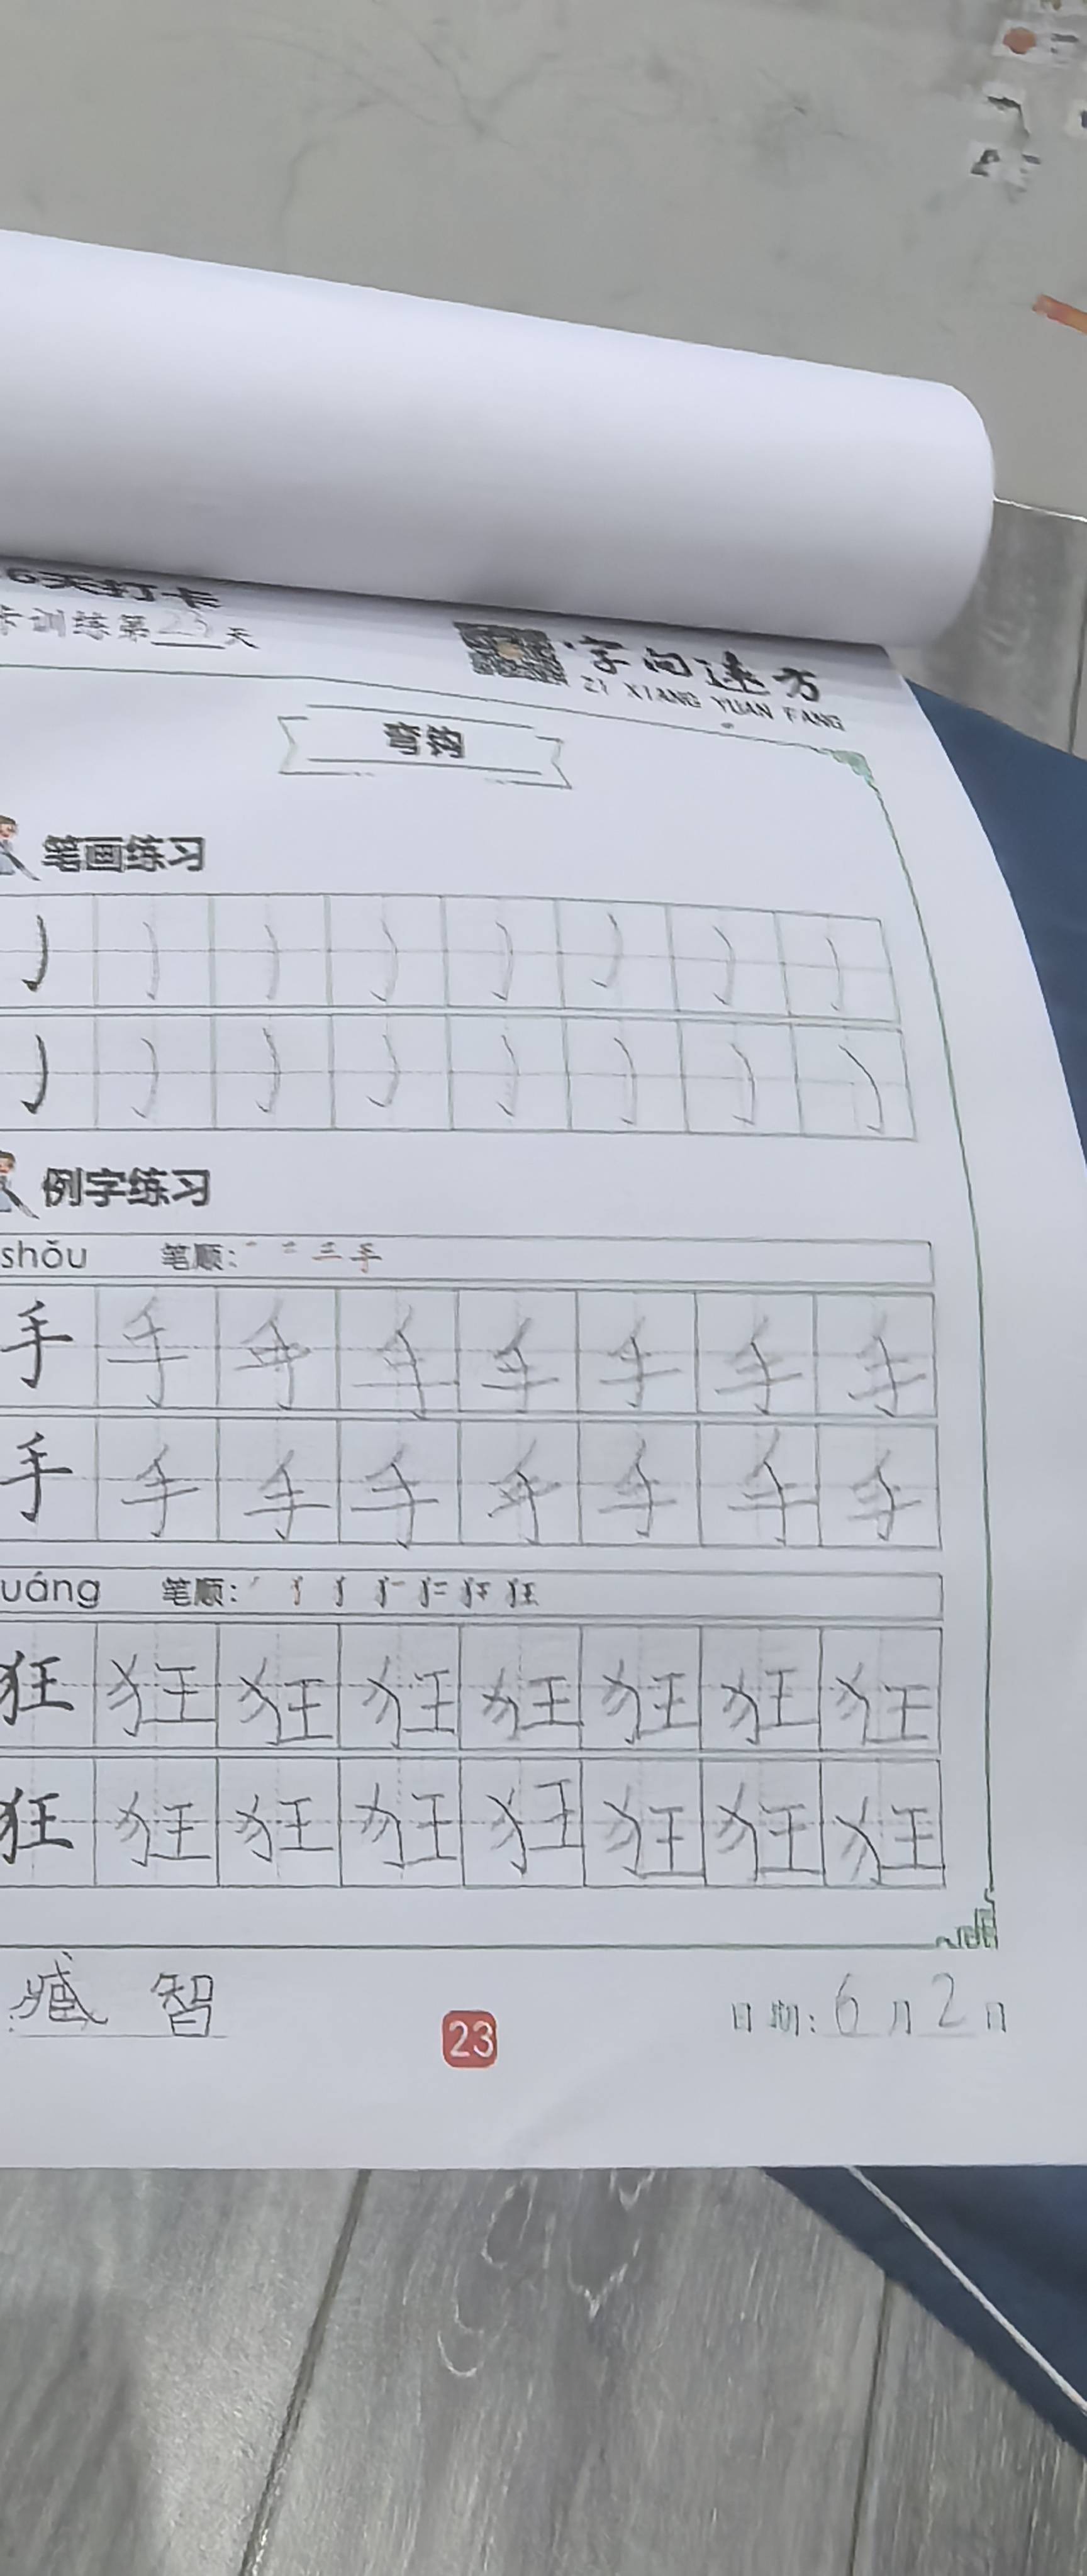 6天打卡
卡训练第23天
字向远方
ZI XIANG YUAN FANG
弯钩
笔画练习
例字练习
shǒu 笔顺: 手
手 手 手 手 手 手 手 手
手 手 手 手 手 手 手 手
uáng 笔顺: 狂
狂 狂 狂 狂 狂 狂 狂 狂
狂 狂 狂 狂 狂 狂 狂 狂
臧 智
23
日期: 6月2日